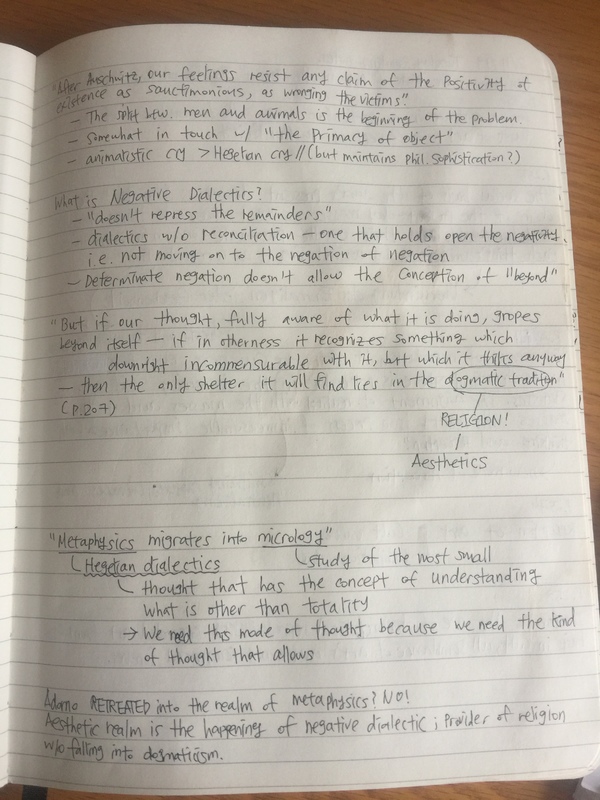 "After Auschwitz, our feelings resist any claim of the positivity of
existence as sanctimonious, as wronging the victims"
– The split btw. men and animals is the beginning of the problem.
– somewhat in touch w/ "the Primacy of object"
– animalistic cry > Hegelian cry // (but maintains phil. sophistication?)
What is Negative Dialectics?
– "doesn't repress the remainders"
– dialectics w/o reconciliation – one that holds open the negativity.
i.e. not moving on to the negation of negation
– Determinate negation doesn't allow the conception of "beyond"
"But if our thought, fully aware of what it is doing, gropes
beyond itself – if in otherness it recognizes something which
downright incommensurable with it, but which it thinks anyway
– then the only shelter it will find lies in the dogmatic tradition"
(p.207)
RELIGION!
Aesthetics
"Metaphysics migrates into micrology"
Hegelian dialectics
study of the most small
thought that has the concept of understanding
what is other than totality
→ We need this mode of thought because we need the kind
of thought that allows
Adorno RETREATED into the realm of metaphysics? NO!
Aesthetic realm is the happening of negative dialectic ; provider of religion
w/o falling into dogmaticism.